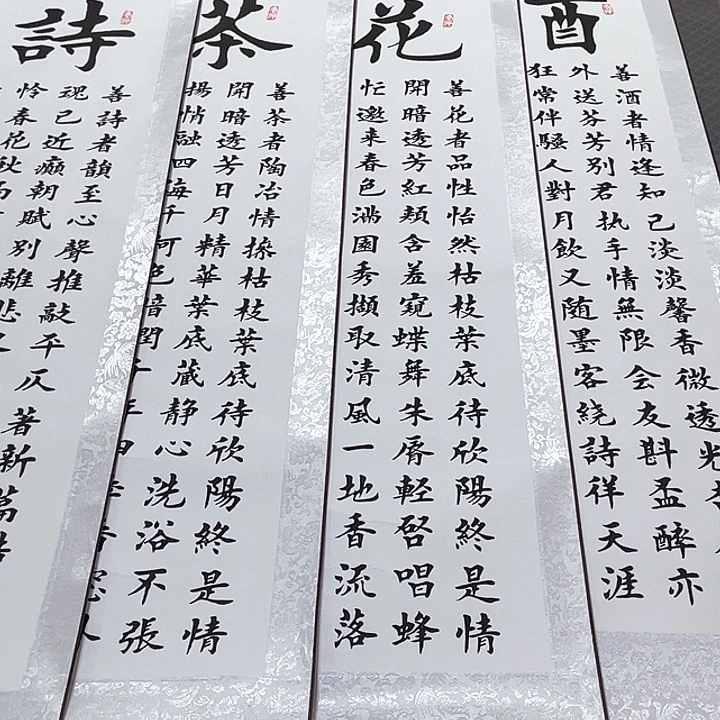 酉
善酒者情逢知己淡淡馨香微透光
外送芬芳別君执手情無限会友斟盃醉亦
狂常伴騷人對月飲又随墨客绕詩徉天涯
花
善花者品性怡然枯枝葉底待欣陽終是情
開暗透芳紅頰含羞窺蝶舞朱唇輕啓唱蜂
忙邀来春色满園秀擷取清風一地香流落
茶
善茶者陶冶情操枯枝葉底待欣陽終是情
開暗透芳日月精華葉底蔵静心洗浴不張
揚悄融四海千可色暗潤
詩
善詩者韻至心聲推敲平仄著新
魂己近癲朝賦別離悲
怜春花秋